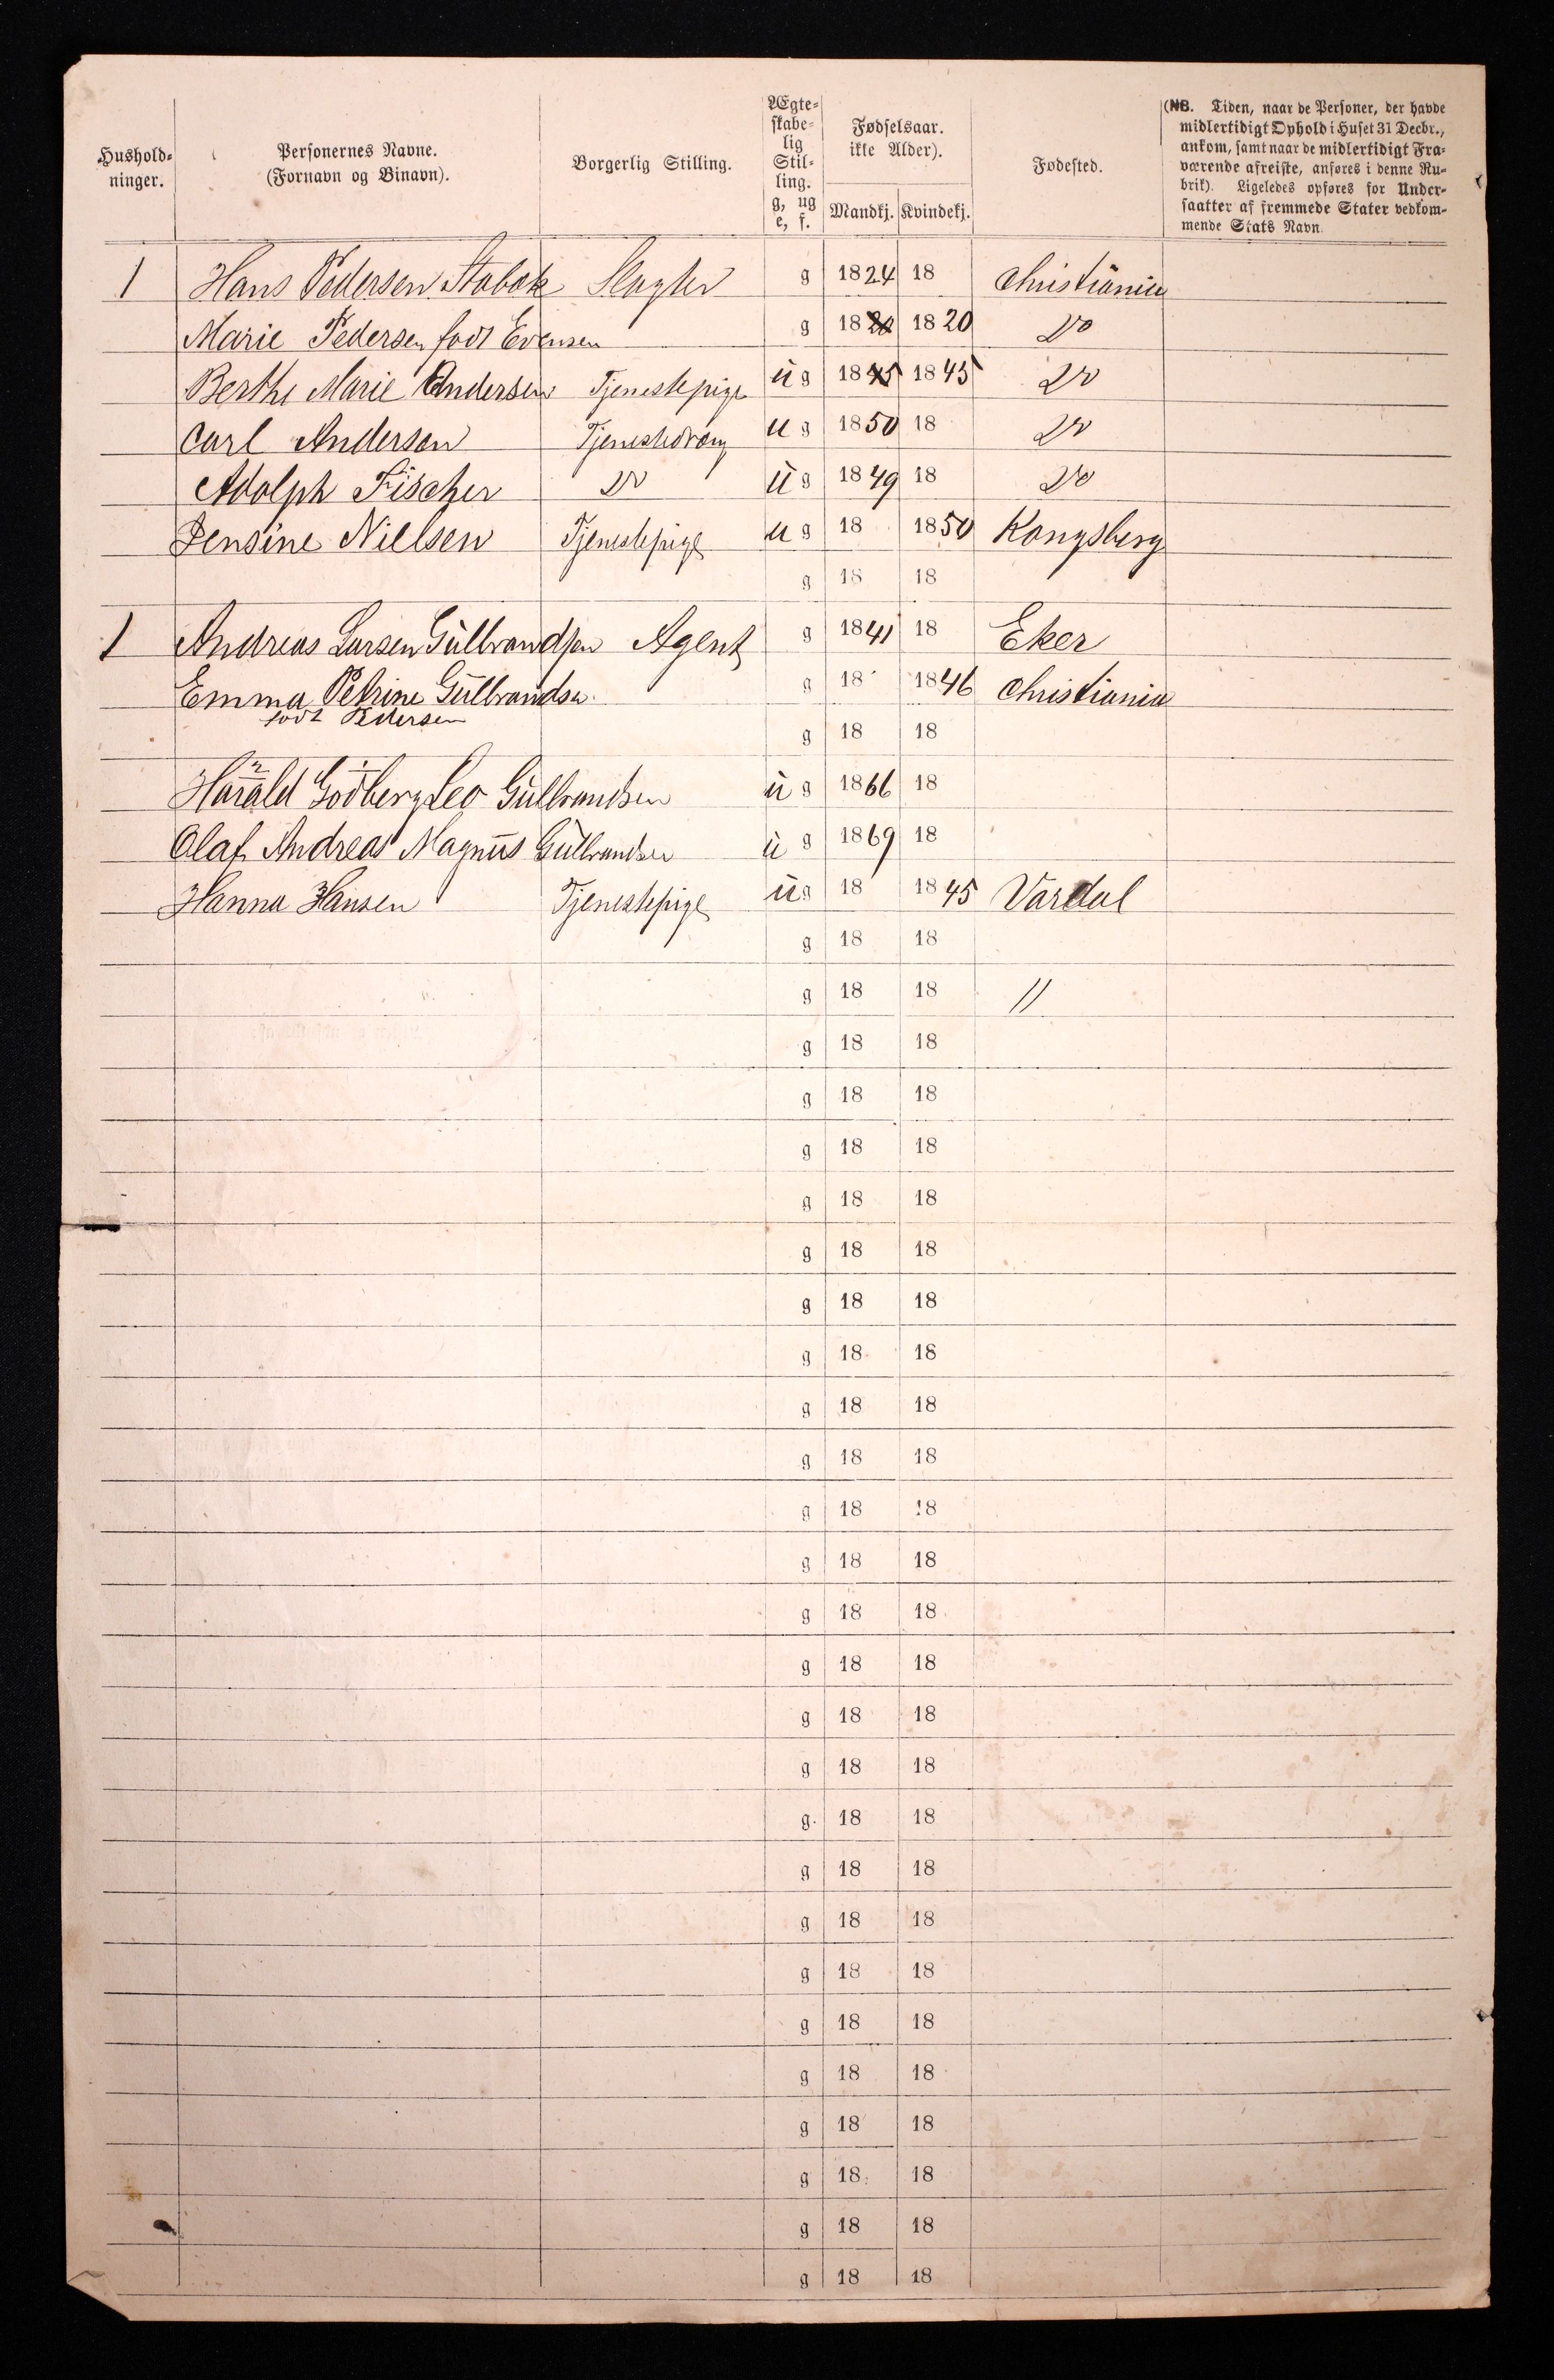 Hushold-
ninger.
Personernes Navne.
(Fornavn og Binavn).
Borgerlig Stilling.
Ægte-
skabe-
lig
Stil-
ling.
g, ug
e, f.
Fødselsaar.
ikke Alder).
Mandkj. Kvindekj.
Fødested.
(NB. Tiden, naar de Personer, der havde
midlertidigt Ophold i Huset 31 Decbr.,
ankom, samt naar de midlertidigt Fra-
værende afreiste, anføres i denne Ru-
brik). Ligeledes opføres for Under-
saatter af fremmede Stater vedkom-
mende Stats Navn.
1 Hans Pedersen Stabæk Slagter g 1824 18 Christiania
Marie Pedersen født Evensen g 18 1820 Do
Berthe Marie Andersen Tjenestepige u g 18 1845 Do
Carl Anderson Tjenestedreng u g 1850 18 Do
Adolph Fischer Do u g 1849 18 Do
Jensine Nielsen Tjenestepige u g 18 1850 Kongsberg
g 18 18
1 Andreas Larsen Gulbrandsen Agent g 1841 18 Eker
Emma Petrine Gulbrandsen g 18 1846 Christiania
født Pedersen
g 18 18
Harald Godberg Leo Gulbrandsen u g 1866 18
Olaf Andreas Magnus Gulbrandsen u g 1869 18
Hanna Hansen Tjenestepige u g 18 1845 Vardal
g 18 18
g 18 18 //
g 18 18
g 18 18
g 18 18
g 18 18
g 18 18
g 18 18
g 18 18
g 18 18
g 18 18
g 18 18
g 18 18
g 18 18
g 18 18
g 18 18
g 18 18
g 18 18
g 18 18
g 18 18
g 18 18
g 18 18
g 18 18
g 18 18
g 18 18
g 18 18
g 18 18